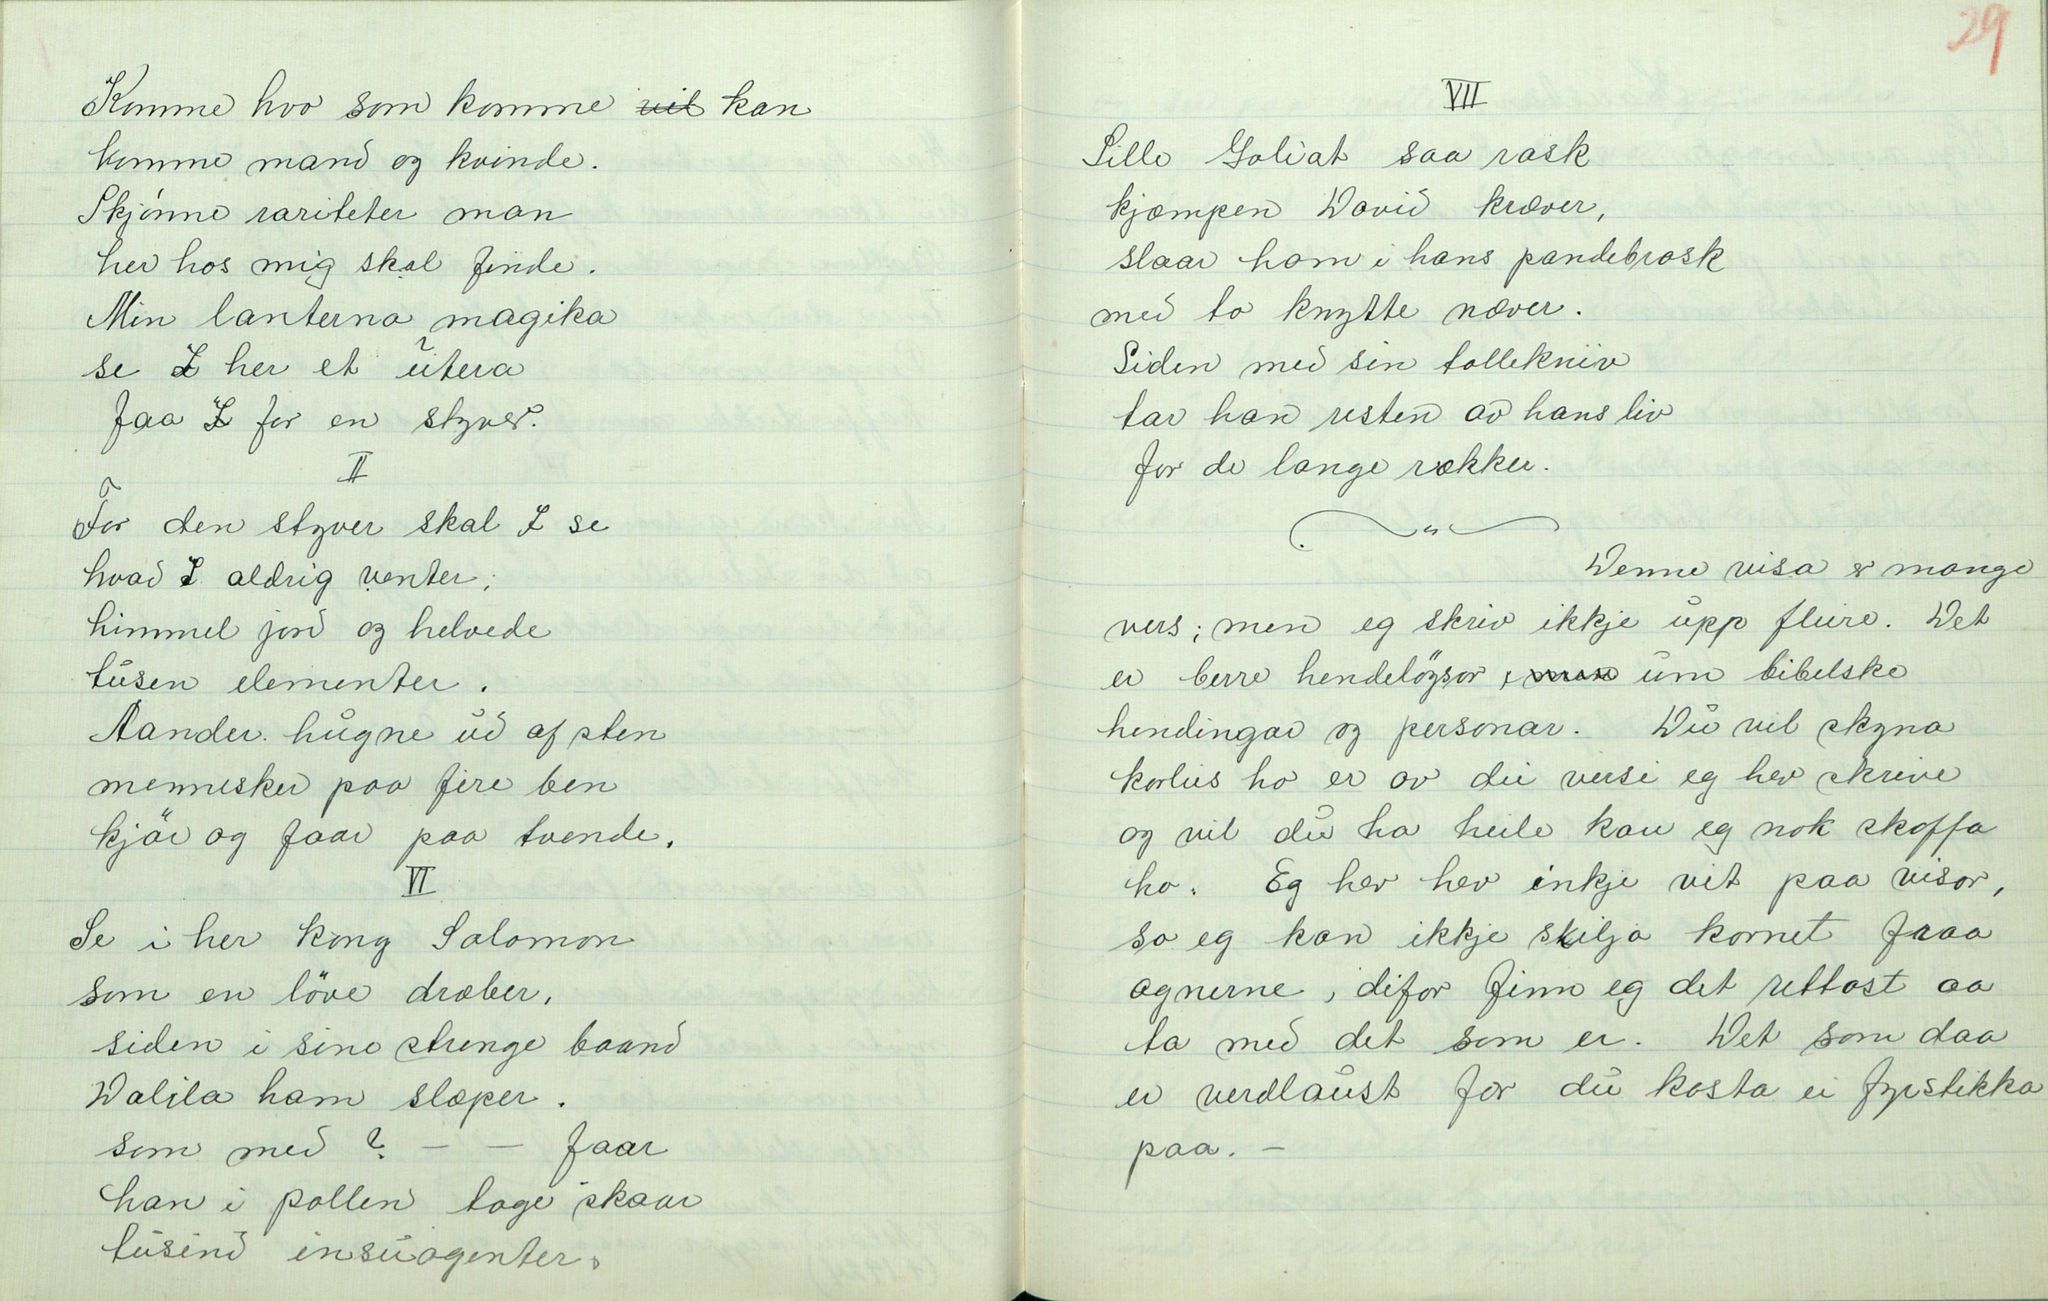 Komme hvo som komme vil kan
komme mand og kvinde.
Skjönne rariteter man
her hos mig skal finde.
Min lanterna magika
se I her et útera
faa I for en styver.
II
For den styver skal I se
hvad I aldrig venter,
himmel jord og helvede
tusen elementer.
Aander hugne ud af sten
mennesker paa fire ben
kjör og faar paa tvende.
VI
Se i her kong Salomon
som en löve dræber,
siden i sine strenge baand
Dalila ham slæper.
som med ? — — faar
han i pollen tage skaar
tusind insuagenter.
29
VII
Lille Goliat saa rask
kjæmpen David kræver,
slaar ham i hans pandebrask
med to knytte næver.
Siden med sin tollekniv
tar han resten av hans liv
for de lange rækker.
Denne visa er mange
vers; men eg skriv ikkje upp fleire. Det
er berre hendelögsor, men um bibelske
hendingar og personar. Du vil skyna
korleis ho er av dei versi eg hev skrive
og vil du ha heile kan eg nok skaffa
ho. Eg hev hev inkje vit paa visor,
so eg kan ikkje skilja kornet fraa
agnerne, difor finn eg det rettast aa
ta med det som er. Det som daa
er verdlaust for du kosta ei fyrstikka
paa. —